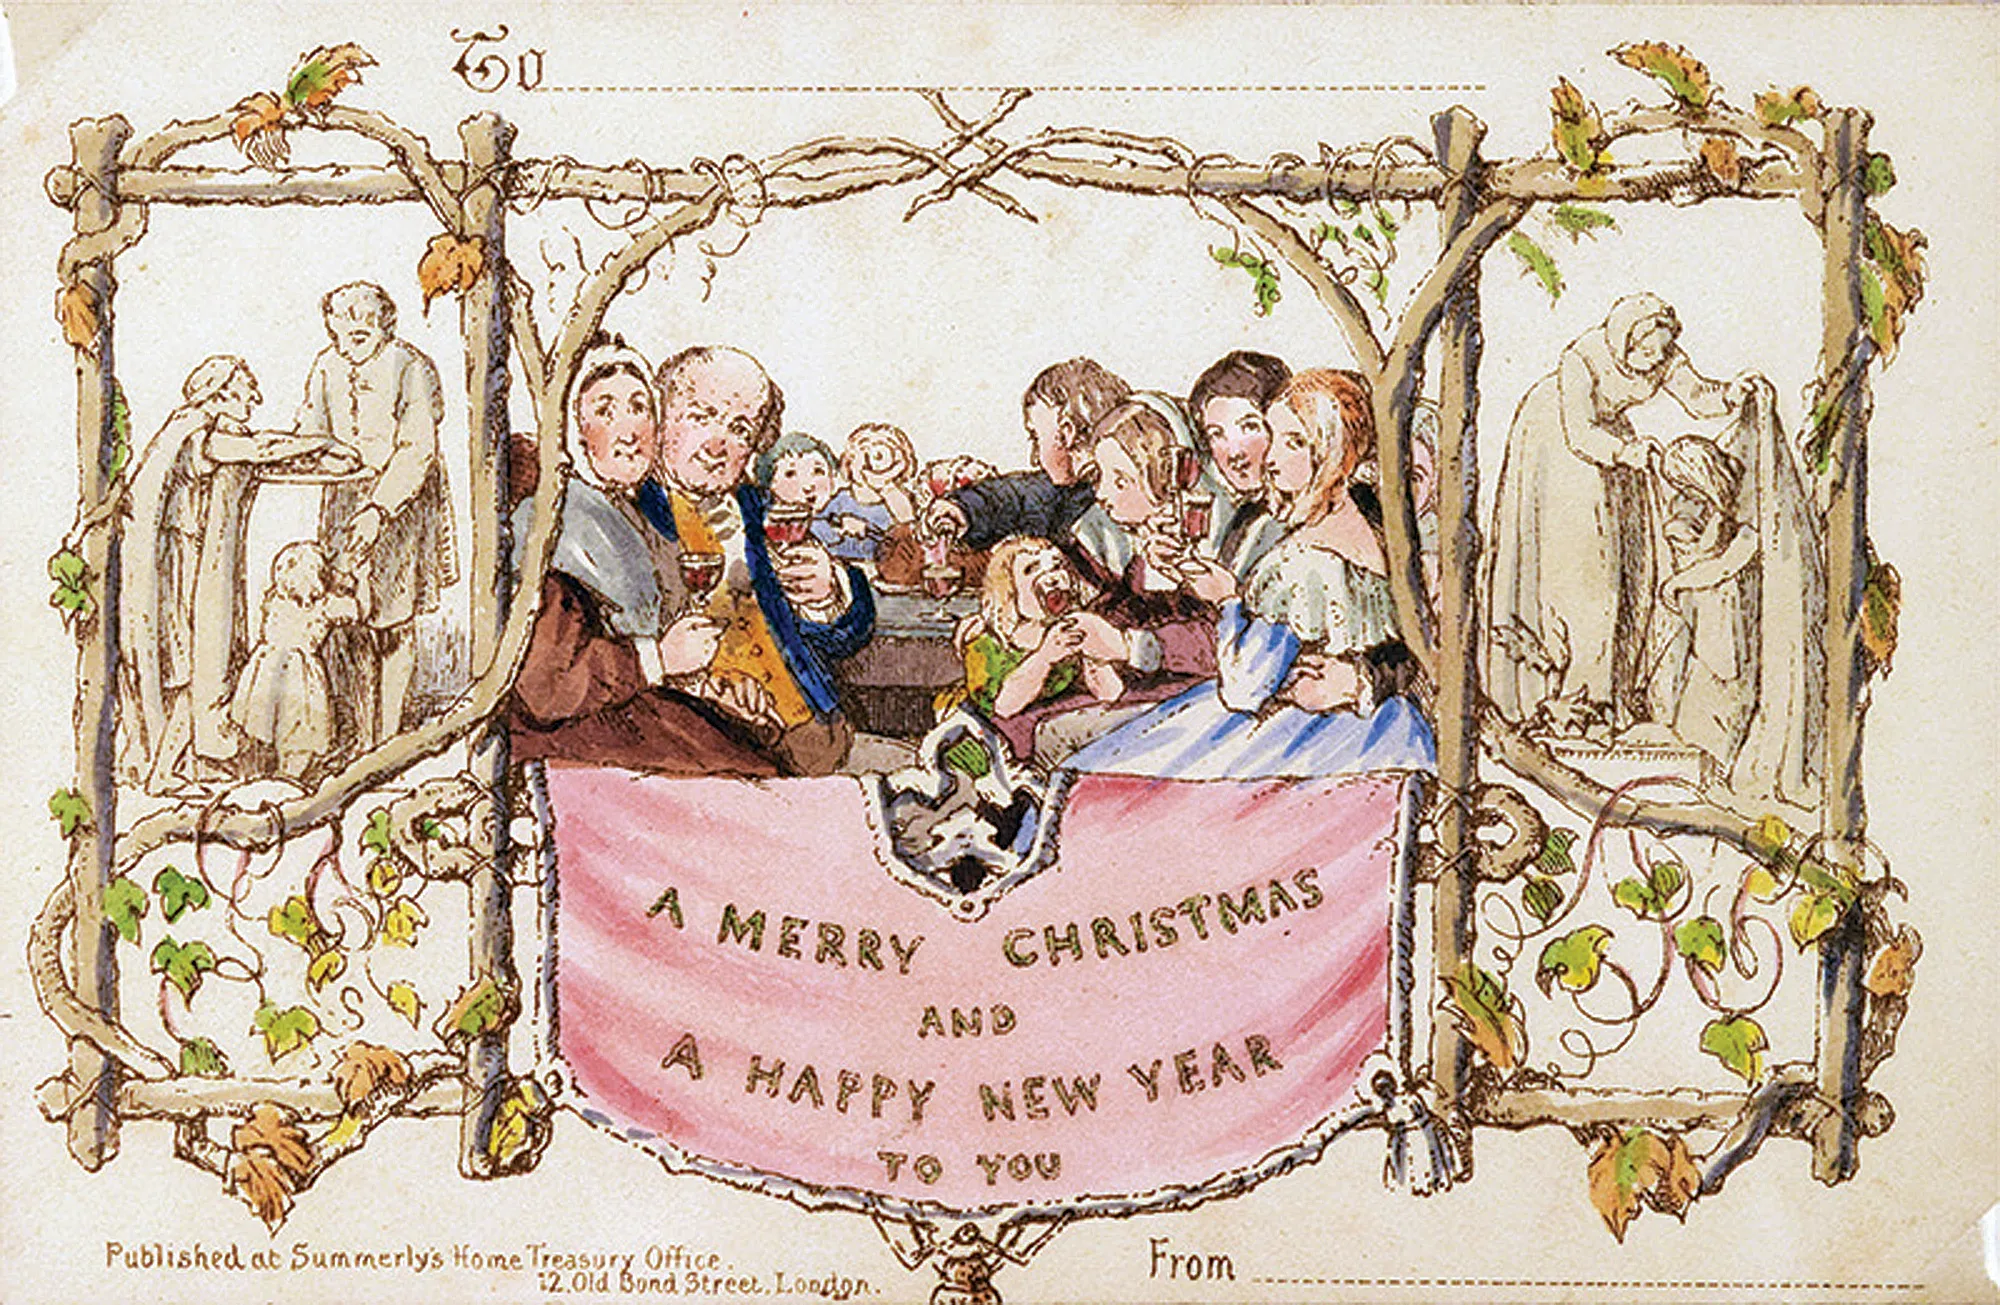 To
A MERRY CHRISTMAS
AND
A HAPPY NEW YEAR
TO YOU
Published at Summerly's Home Treasury Office.
12. Old Bond Street, London.
From